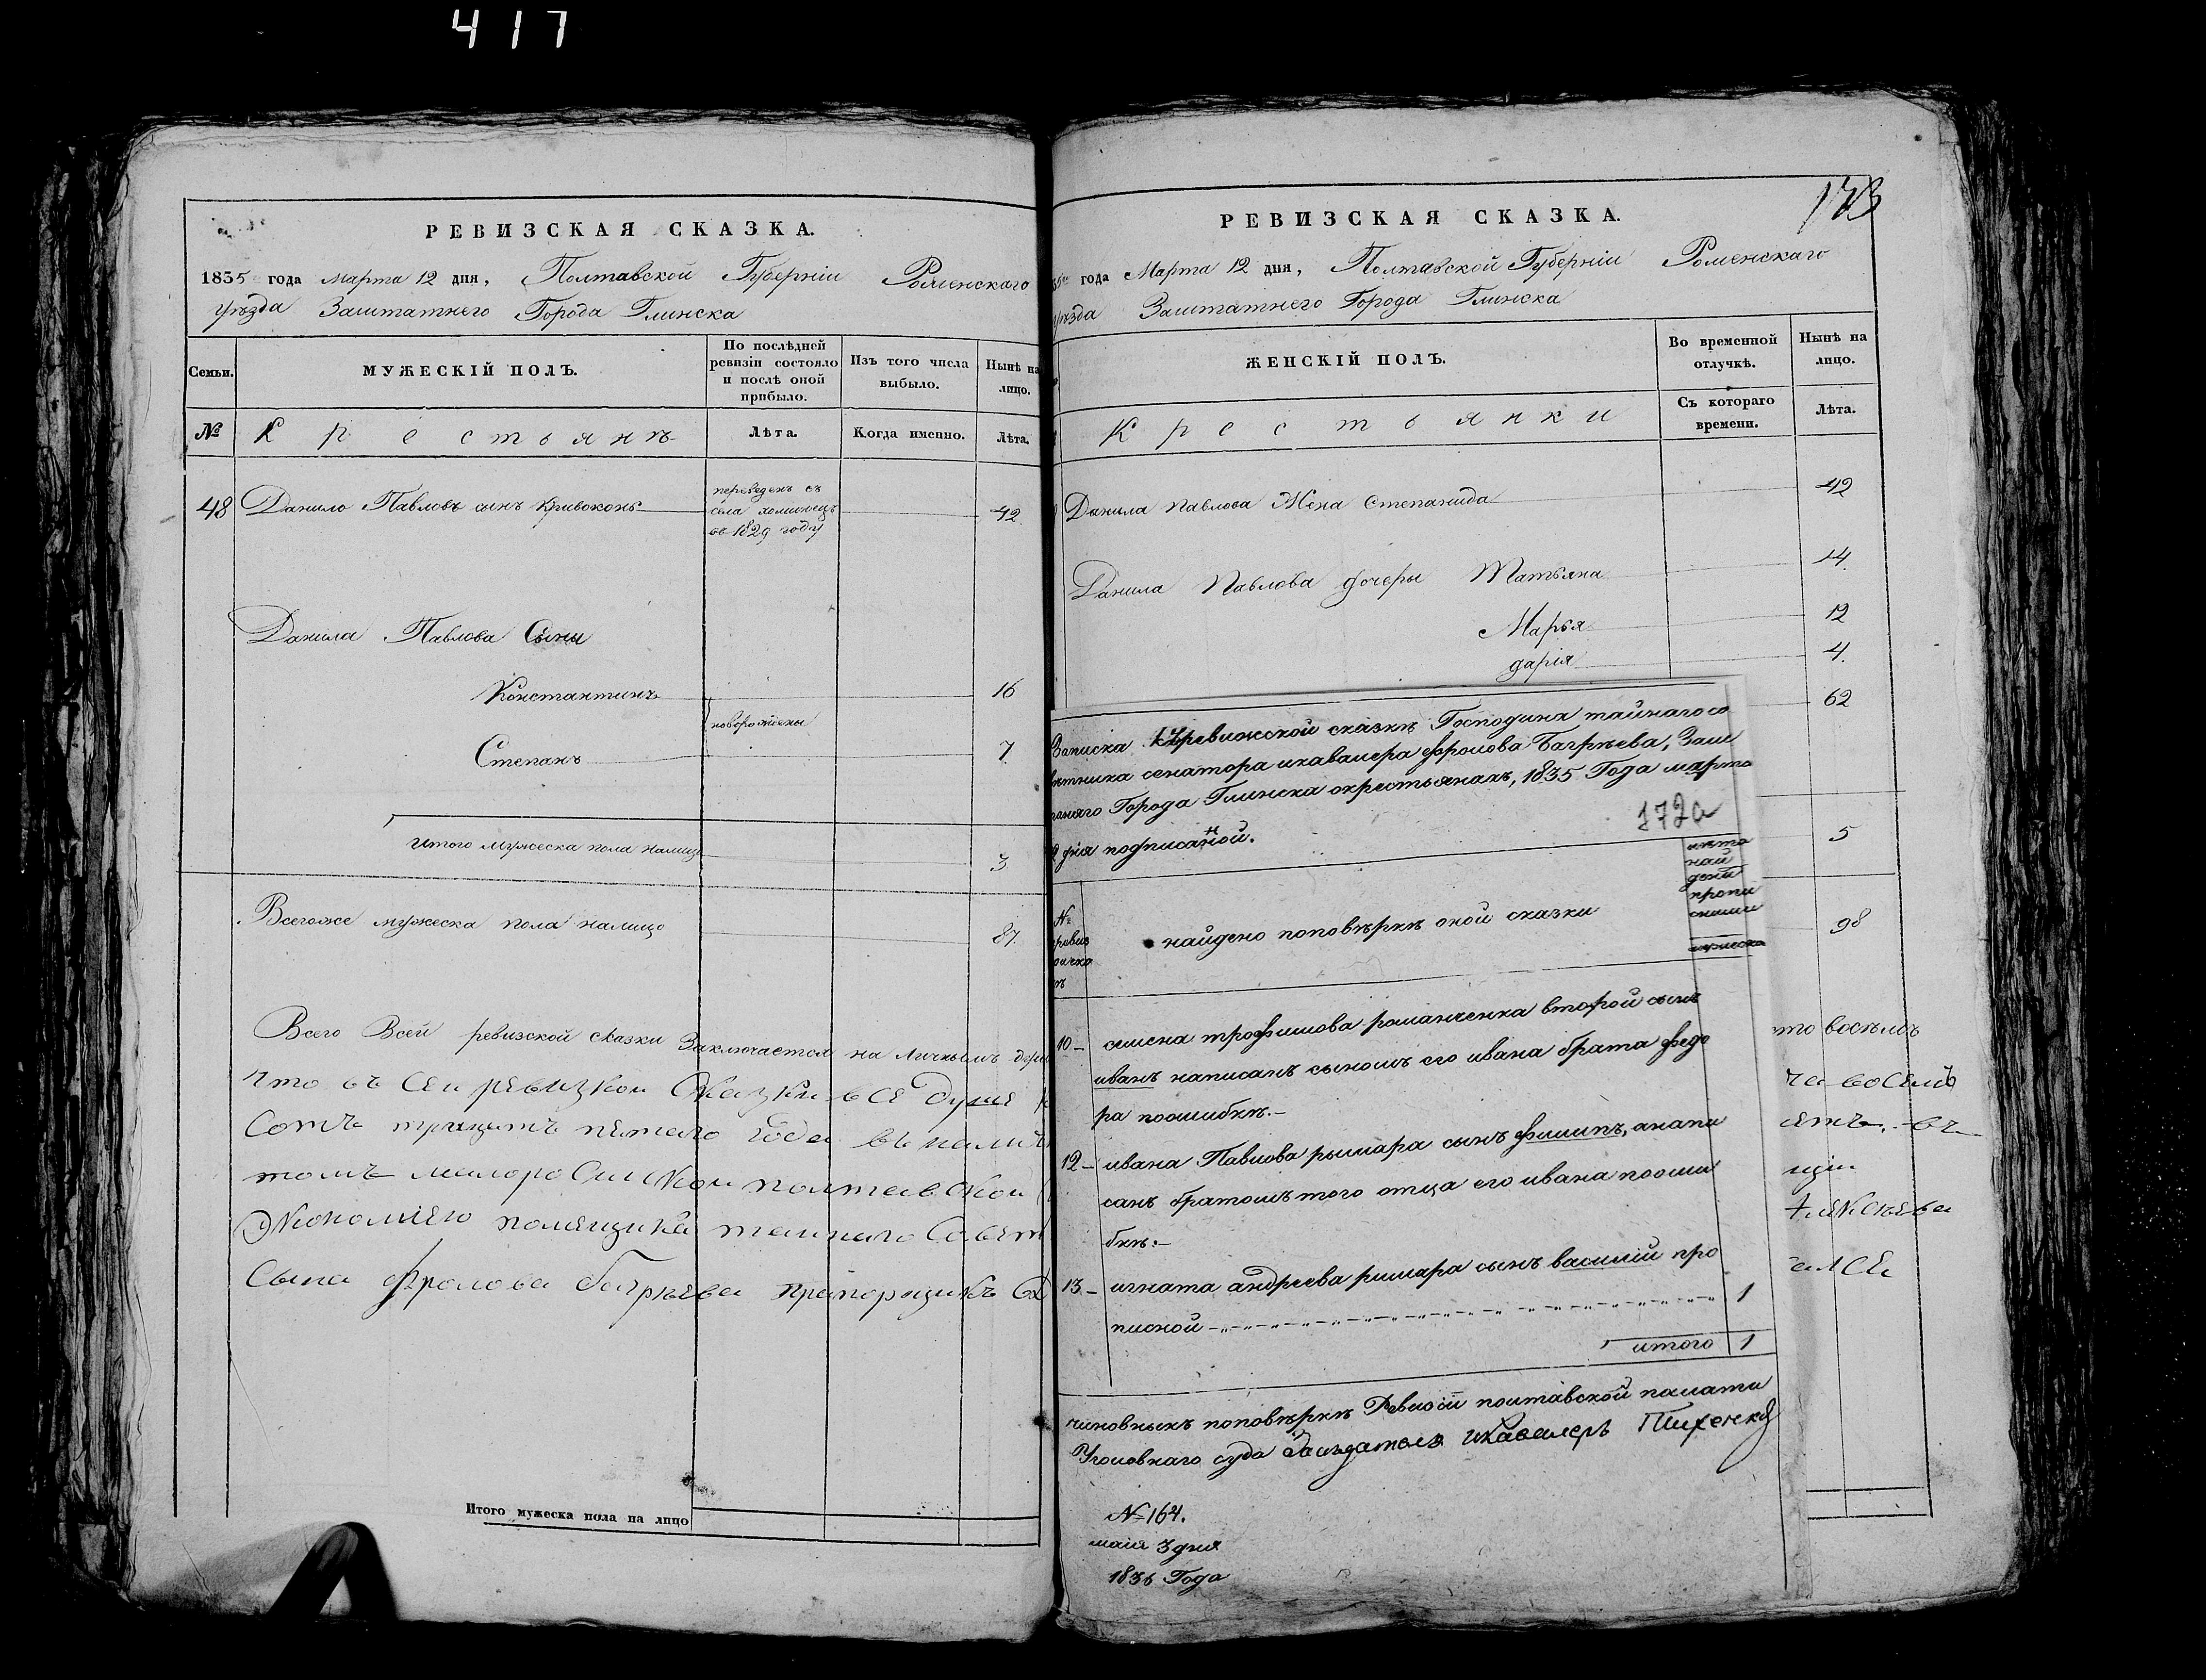 417
РЕВИЗСКАЯ СКАЗКА.
1835 года Марта 12 дня, Полтавской Губерніи Роменскаго
уѣзда Заштатнего Города Глинска
Семьи.
МУЖЕСКІЙ ПОЛЪ.
По послѣдней
ревизіи состояло
и послѣ оной
прибыло.
Изъ того числа
выбыло.
Нынѣ на
лицо.
№
Крестьянъ
Лѣта.
Когда именно.
Лѣта.
48 Данило Павловъ сынъ Кривоконь
переведенъ съ
села хоминецъ
въ 1829 году
42
Данила Павлова Сыны
Константинъ 16
новорожdены
Степанъ 7.
Итого мужеска пола налицо 3
Всегоже мужеска пола налицо 87.
Всего Всей ревизской сказки Заключается на личныхъ
что въ сеи ревизкои сказки все души
сотъ трицетъ пятаго года въ
томъ малоросискои полтавскои
Экономиею помещика таинаго Совет
Сына Фролова Багреева прапорщикъ
Итого мужеска пола на лицо
173
РЕВИЗСКАЯ СКАЗКА.
года Марта 12 дня, Полтавской Губерніи Роменскаго
уѣзда Заштатнего Города Глинска
ЖЕНСКІЙ ПОЛЪ.
Во временной
отлучкѣ.
Нынѣ на
лицо.
Крестьянки
Съ котораго
времени.
Лѣта.
Данила Павлова Жена Степанида 42
Данила Павлова дочеры Татьяна 14.
Марья 12
дарія 4.
62
5
98
восѣмъ
восемъ
Алексѣева
Записка кревижской сказкѣ Господина тайнаго со
вѣтника сенатора икавалера Фролова Багрѣева, Заш
Города Глинска окрестьянахъ, 1835 Года марта
дня подписанной.
172а
най
дени
пропи
сними
мужеска
№
найдено поповѣркѣ оной сказки
10 – трофимова романченка второй сынъ
иванъ написанъ сыномъ его ивана брата федо
ра поошибкѣ. –
12 – ивана Павлова рымара сынъ филипъ, анапи
санъ братомъ того отца его ивана пооши
бкѣ: –
13 – игната андреева римара сынъ василій про
писной 1
итого 1
чиновныкъ поповѣркѣ Ревизіи полтавской палати
Уголовнаго суда Засѣдатель икавалеръ
№ 164.
маія 3 дня
1836 Года